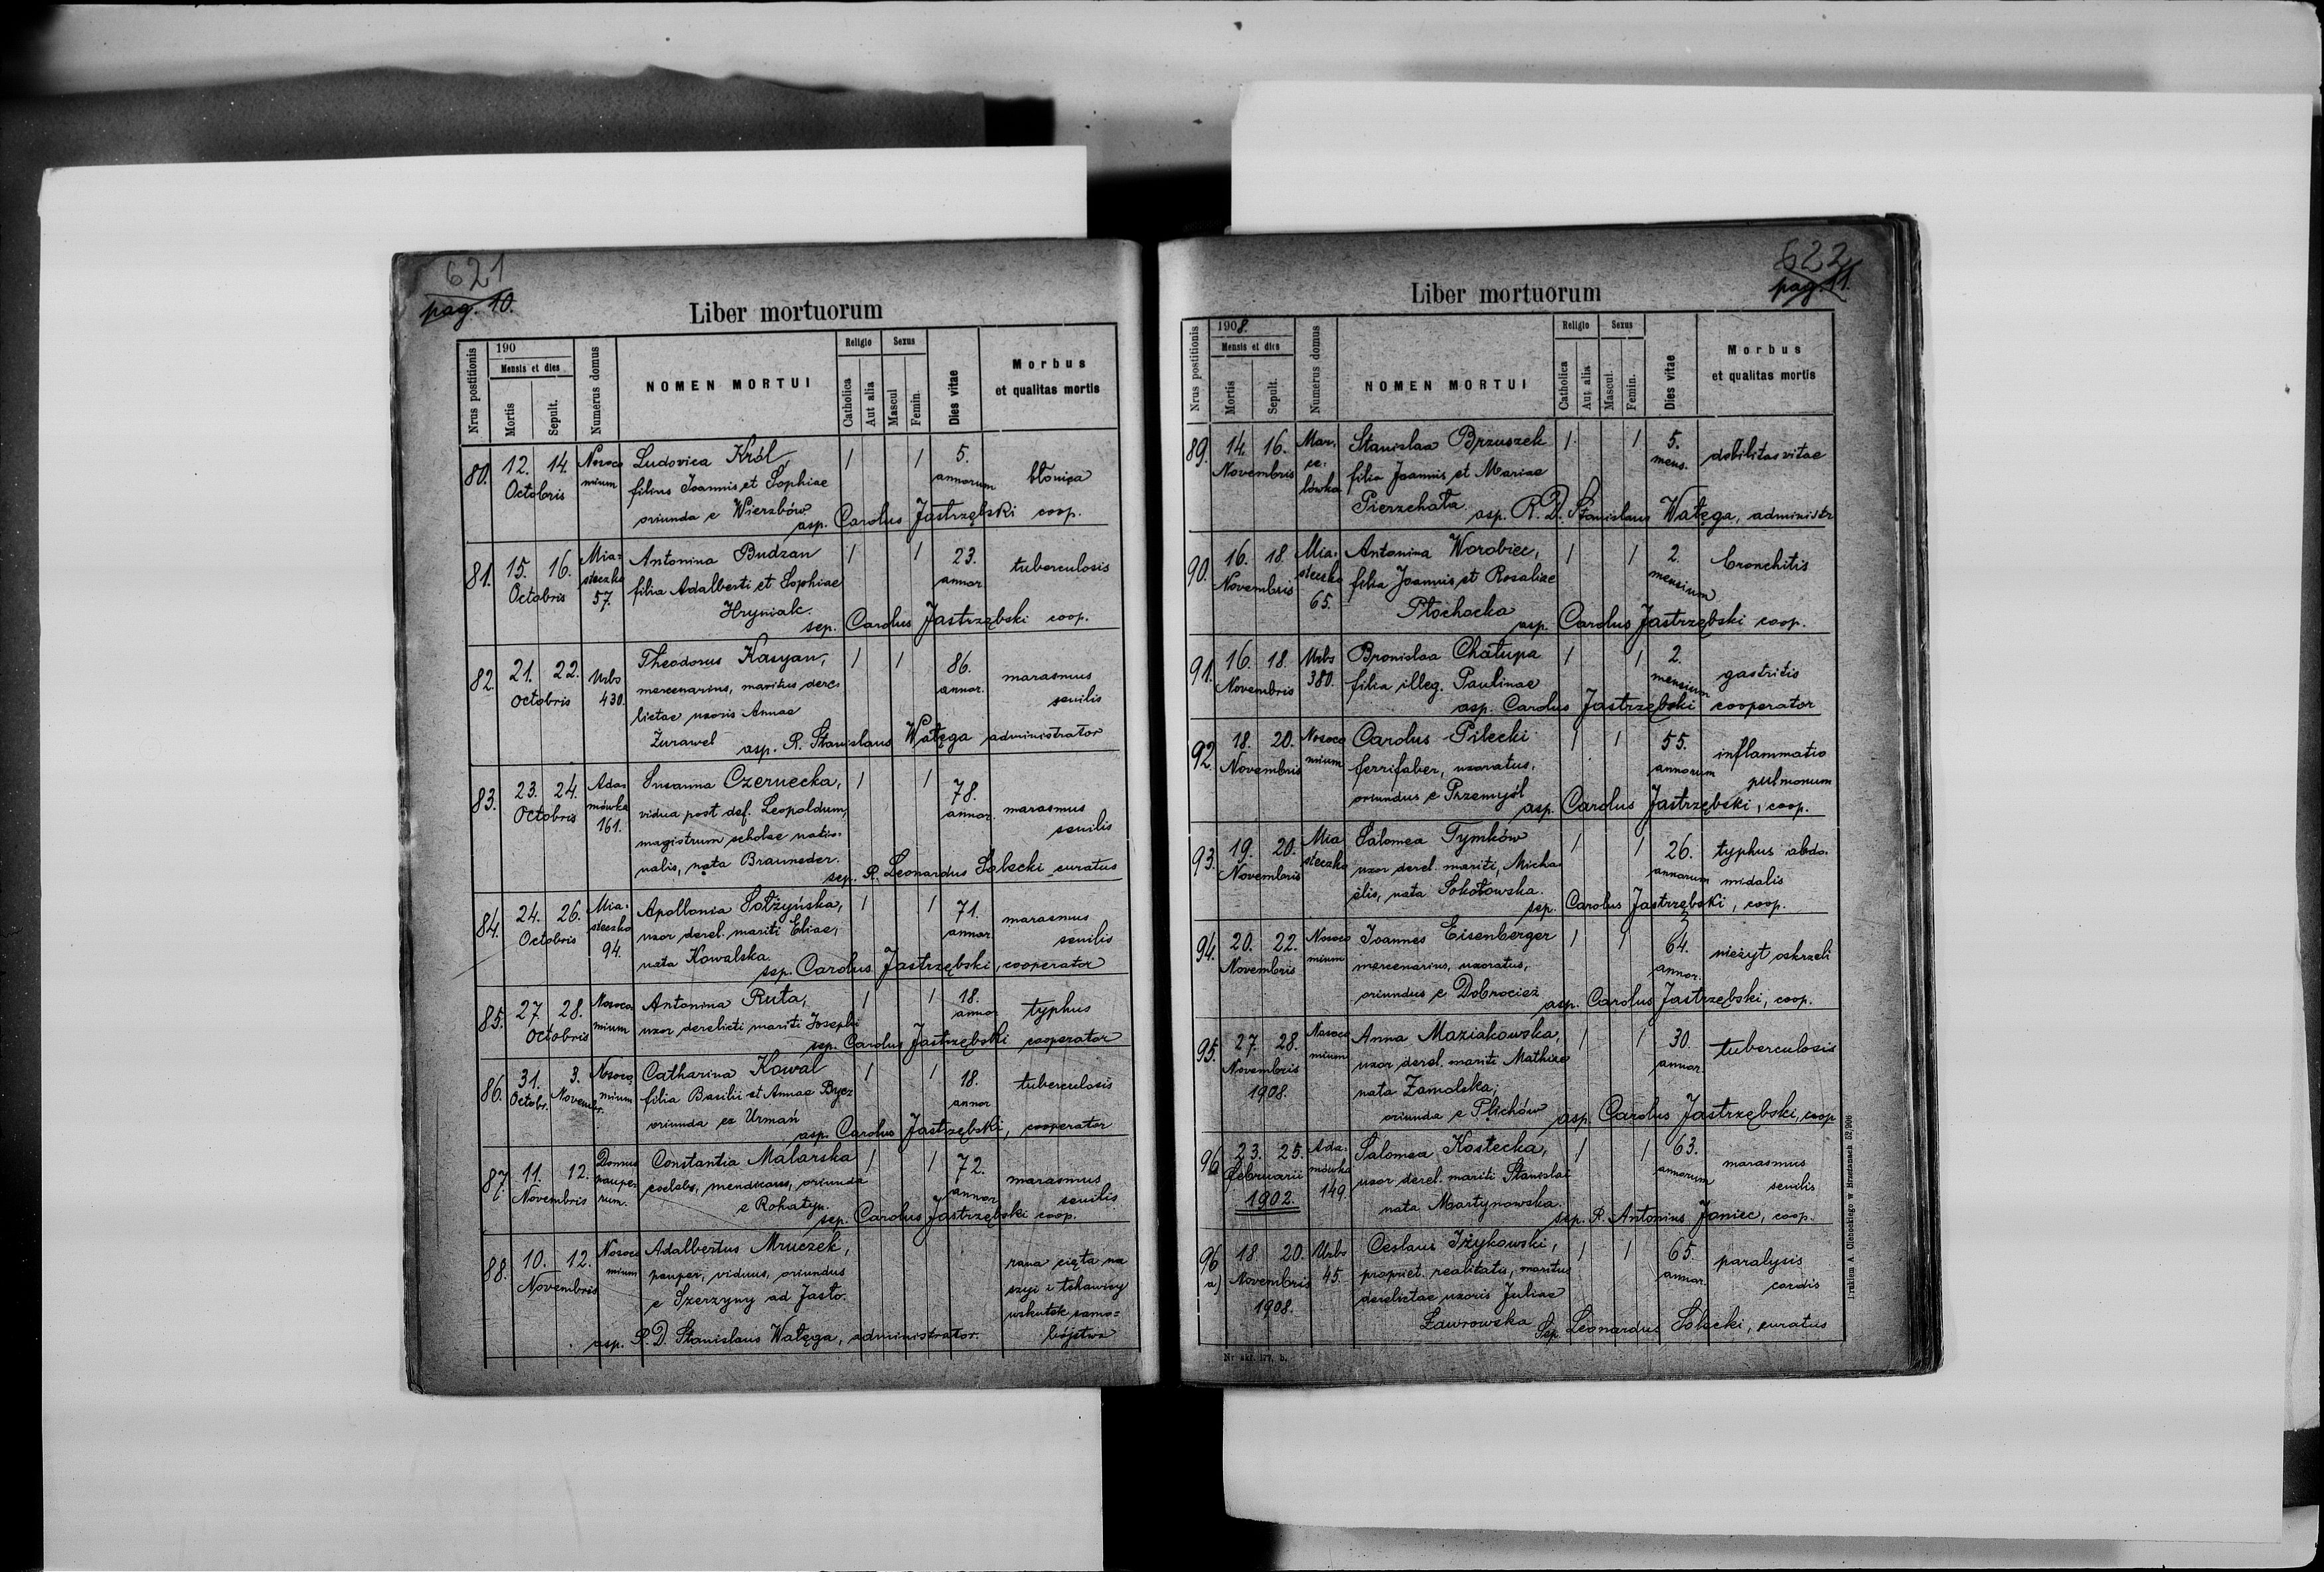 621
pag. 10.
Liber mortuorum
Nrus postitionis
190
Mensis et dies
Mortis
Sepult.
Numerus domus
NOMEN MORTUI
Religio
Catholica
Aut alia
Sexus
Mascul
Femin.
Dies vitae
Morbus
et qualitas mortis
80. 12. 14. Nosoco Ludovica Król, 1 1 5.
Octobris mium filius Joannis et Sophiae annorum błonica
oriunda e Wierzbów
asp. Carolus Jastrzębski coop.
81. 15. 16. Mia= Antonina Budzan 1 1 23. tuberculosis
Octobris steczko filia Adalberti et Sophiae annor
57. Hryniak.
sep. Carolus Jastrzębski coop.
82. 21. 22. Urbs Theodorus Kasyan, 1 1 86. marasmus
Octobris 430. mercenarius, maritus dere= annor. senilis
lictae uxoris Annae
Żurawel asp. R. Stanislaus Wałęga administrator
83. 23. 24. Ada= Susanna Czernecka, 1 1 78.
Octobris mówka vidua post def. Leopoldum, annor. marasmus
161. magistrum scholae natio= senilis
nalis, nata Brauneder.
sep. R. Leonardus Solecki curatus
84. 24. 26. Mia= Apollonia Sołżyńska, 1 1 71. marasmus
Octobris steczko uxor derel. mariti Eliae, annor. senilis
94. nata Kowalska.
sep. Carolus Jastrzębski, cooperator
85. 27. 28. Nosoco Antonina Ruta, 1 1 18. typhus
Octobris mium uxor derelicti mariti Josephi annor
sep. Carolus Jastrzębski cooperator
86. 31. 3. Nosoco Catharina Kowal 1 1 18. tuberculosis
Octobr. Novembr. mium filia Basilii et Annae Bycz annor
oriunda ex Urmań
asp. Carolus Jastrzębski, cooperator
87. 11. 12. Domus Constantia Malarska 1 1 72. marasmus
Novembris paupe= coelebs, mendicans, oriunda annor senilis
rum. e Rohatyn.
sep. Carolus Jastrzębski coop.
88. 10. 12. Nosoco Adalbertus Mruczek, rana cięta na
Novembris mium pauper, viduus, oriundus szyi i tchawicy
e Szerzyny ad Jasło. wskutek samo=
asp. R. D. Stanislaus Wałęga, administrator. bójstwa
622
pag. 11.
Liber mortuorum
Nrus postitionis
1908.
Mensis et dies
Mortis
Sepult.
Numerus domus
NOMEN MORTUI
Religio
Catholica
Aut alia
Sexus
Mascul.
Femin.
Dies vitae
Morbus
et qualitas mortis
89. 14. 16. Mar= Stanislaa Brzuszek 1 1 5. debilitas vitae
Novembris ce= filia Joannis et Mariae mens.
lówka Pierzchała.
asp. R. D. Stanislaus Wałęga, administr
90. 16. 18. Mia= Antonina Worobiec, 1 1 2. bronchitis
Novembris steczko filia Joannis et Rosaliae mensium
65. Płochocka
asp. Carolus Jastrzębski coop.
91. 16. 18. Urbs Bronislaa Chałupa 1 1 2. gastritis
Novembris 380. filia illeg. Paulinae mensium
asp. Carolus Jastrzębski cooperator
92. 18. 20. Nosoco Carolus Pilecki 1 1 55. inflammatio
Novembris mium ferrifaber, uxoratus, annorum pulmonum
oriundus e Przemyśl
asp. Carolus Jastrzębski, coop.
93. 19. 20. Mia Salomea Tymków 1 1 26. typhus abdo=
Novembris steczko uxor derel. mariti, Micha= annorum midalis
elis, nata Sokołowska.
sep. Carolus Jastrzębski, coop.
94. 20. 22. Nosoco Joannes Eisenberger 1 1 64. nieżyt oskrzeli
Novembris mium mercenarius, uxoratus, annor.
oriundus e Dobrocież
asp. Carolus Jastrzębski, coop.
95. 27. 28. Nosoco Anna Maziakowska, 1 1 30. tuberculosis
Novembris mium uxor derel. mariti Mathiae annor.
1908. nata Zamolska;
oriunda e Plichów asp. Carolus Jastrzębski, coop
96 23. 25. Ada= Salomea Kostecka, 1 1 63. marasmus
Februarii mówka uxor derel. mariti Stanislai annorum senilis
1902. 149. nata Martynowska.
sep. R. Antonius Janiec, coop.
96 18. 20. Urbs Ceslaus Iżykowski, 1 1 65. paralysis
a) Novembris 45. propriet. realitatis, maritus annor. cordis
1908. derelictae uxoris Juliae
Ławrowska Sep. Leonardus Solecki, curatus
Nr skł. 177. b.
Drukiem A. Clenockiego w Brzeżanach 52/906